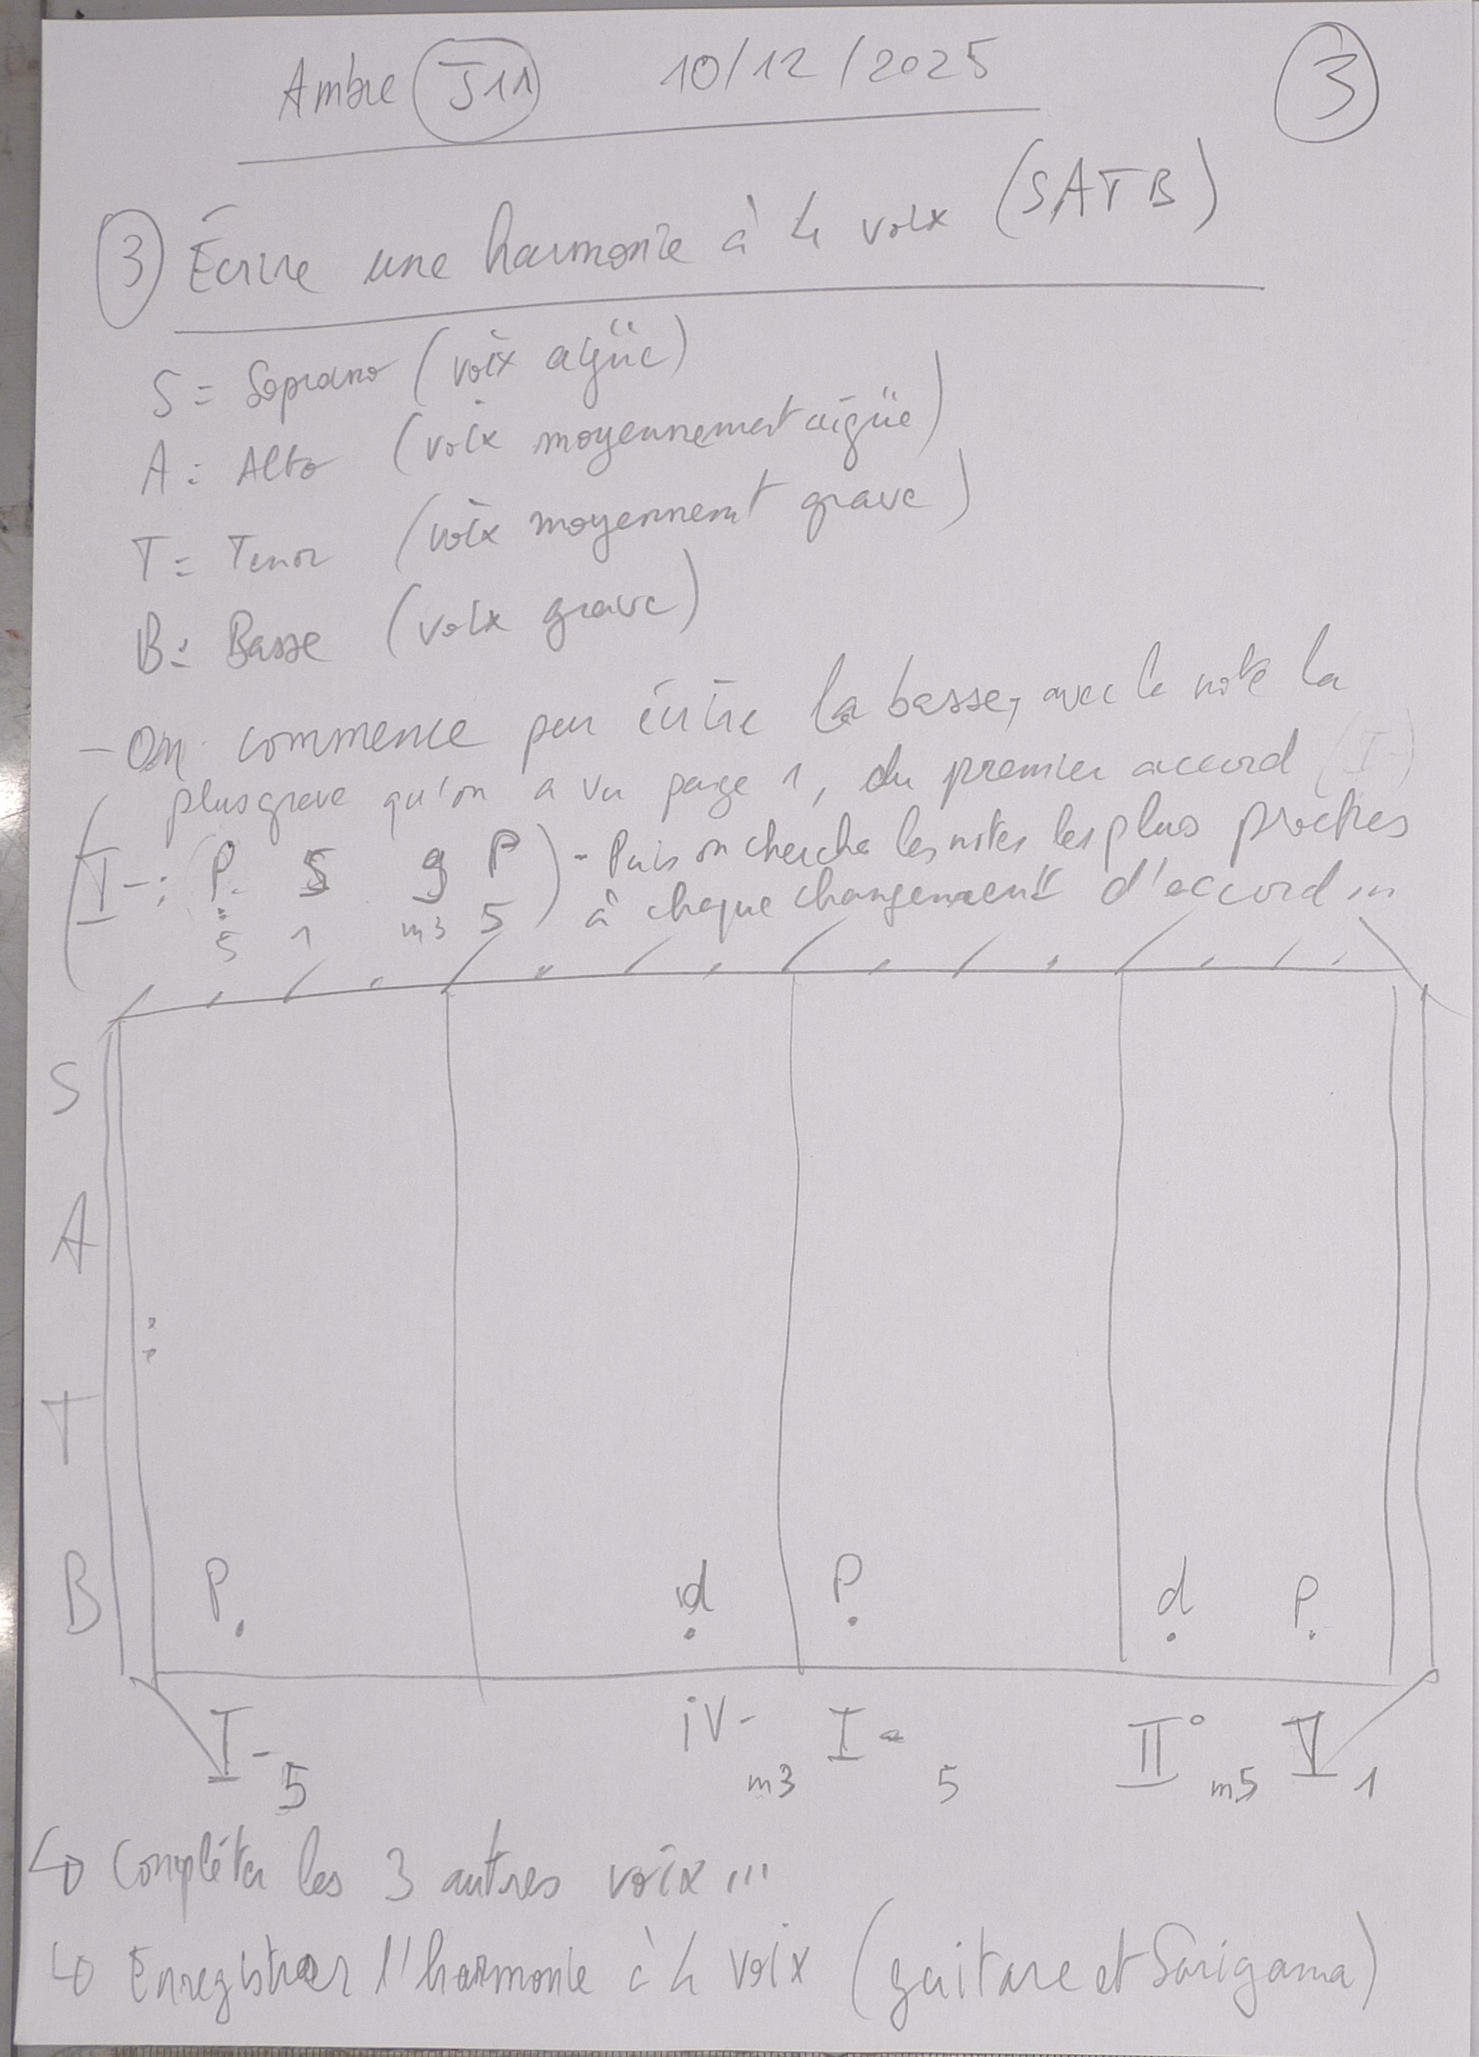 Ambre J11 10/12/2025 3
3 Écrire une harmonie à 4 voix (SATB)
S = Soprano (voix aigüe)
A = Alto (voix moyennement aigüe)
T = Tenor (voix moyennent grave)
B = Basse (voix grave)
- On commence par écrire la basse, avec la note la
plus grave qu'on a vu page 1, du premier accord (I-)
(I- : P. S g P) - Puis on cherche les notes les plus proches
5 1 m3 5 à chaque changement d'accord ...
S
A
T
B P. d. P. d. P.
I- 5 iv- m3 I- 5 II° m5 V 1
↳ Compléter les 3 autres voix ...
↳ Enregistrer l'harmonie à 4 voix (guitare et Sarigama)